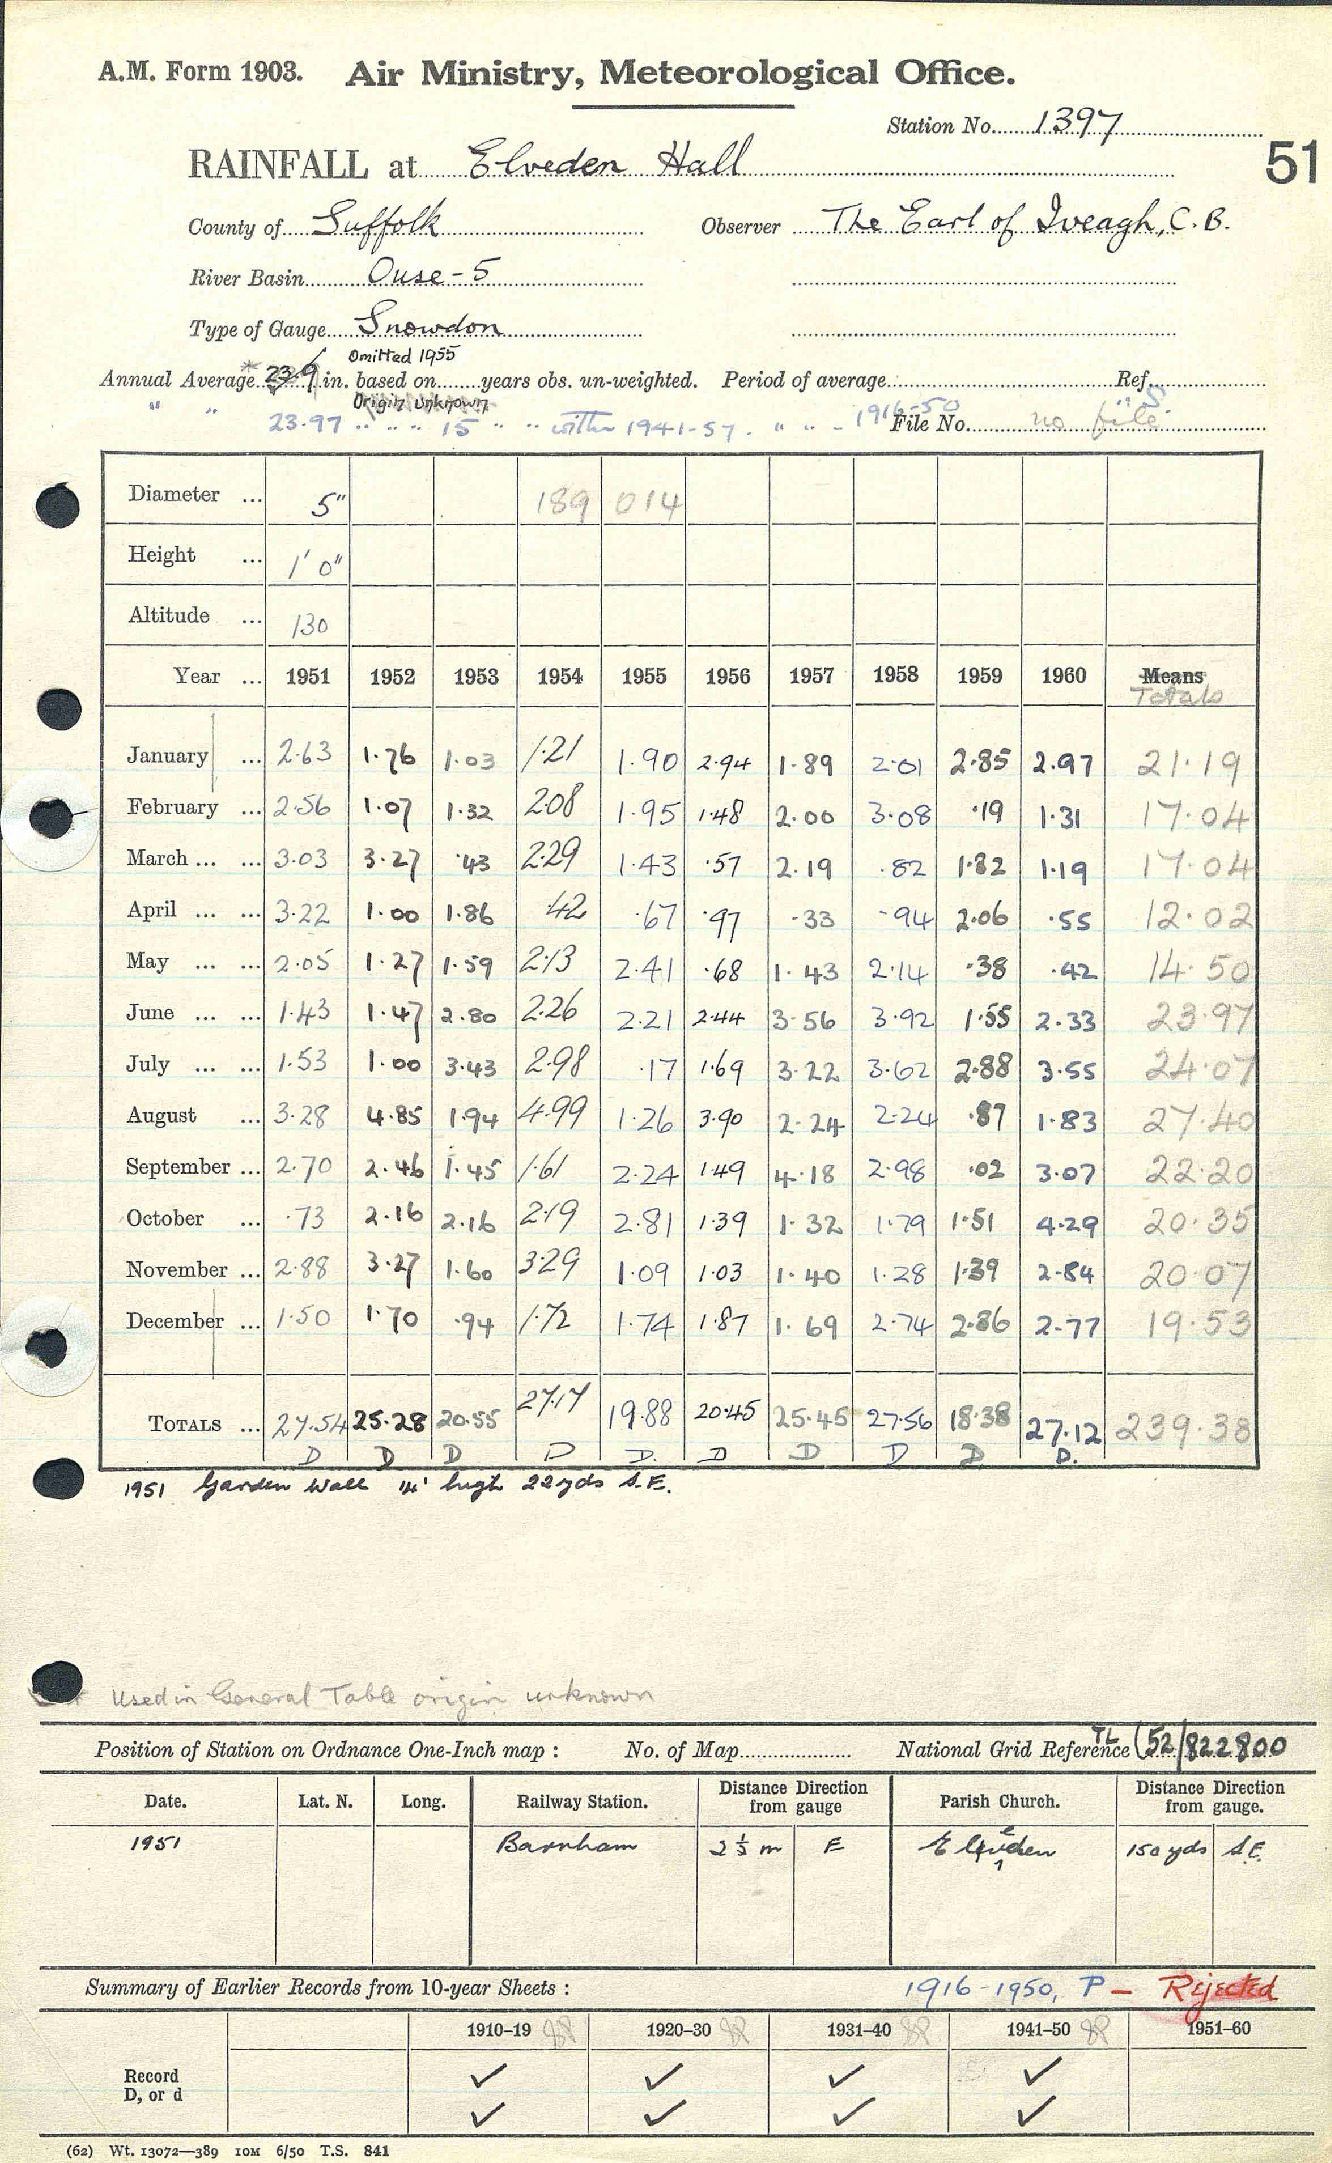 A.M. Form 1903. Air Ministry, Meteorological Office.
Station No. 1397
51
RAINFALL at Elveden Hall
County of Suffolk Observer The Earl of Iveagh, C.B.
River Basin Ouse-5
Type of Gauge Snowdon
Omitted 1955
Annual Average *23.9 in. based on years obs. un-weighted. Period of average Ref.
Origin Unknown
" " 23.97 " " " 15 " " within 1941-57. " " - 1916-50 File No. no file
Diameter ... 5" 189 014
Height ... 1' 0"
Altitude ... 130
Year ... 1951 1952 1953 1954 1955 1956 1957 1958 1959 1960 Means
Totals
January ... 2.63 1.76 1.03 1.21 1.90 2.94 1.89 2.01 2.85 2.97 21.19
February ... 2.56 1.07 1.32 2.08 1.95 1.48 2.00 3.08 .19 1.31 17.04
March ... ... 3.03 3.27 .43 2.29 1.43 .57 2.19 .82 1.82 1.19 17.04
April ... ... 3.22 1.00 1.86 .42 .67 .97 .33 .94 2.06 .55 12.02
May ... ... 2.05 1.27 1.59 2.13 2.41 .68 1.43 2.14 .38 .42 14.50
June ... ... 1.43 1.47 2.80 2.26 2.21 2.44 3.56 3.92 1.55 2.33 23.97
July ... ... 1.53 1.00 3.43 2.98 .17 1.69 3.22 3.62 2.88 3.55 24.07
August ... 3.28 4.85 1.94 4.99 1.26 3.90 2.24 2.24 .87 1.83 27.40
September ... 2.70 2.46 1.45 1.61 2.24 1.49 4.18 2.98 .02 3.07 22.20
October ... .73 2.16 2.16 2.19 2.81 1.39 1.32 1.79 1.51 4.29 20.35
November ... 2.88 3.27 1.60 3.29 1.09 1.03 1.40 1.28 1.39 2.84 20.07
December ... 1.50 1.70 .94 1.72 1.74 1.87 1.69 2.74 2.86 2.77 19.53
TOTALS ... 27.54 25.28 20.55 27.17 19.88 20.45 25.45 27.56 18.38 27.12 239.38
D D D D D. D D D D D.
1951 Garden Wall 14' high 22yds S.E.
Used in General Table origin unknown
Position of Station on Ordnance One-Inch map : No. of Map National Grid Reference TL (52)/822800
Date. Lat. N. Long. Railway Station. Distance Direction from gauge Parish Church. Distance Direction from gauge.
1951 Barnham 2½ m E Elveden 150 yds S.E.
Summary of Earlier Records from 10-year Sheets : 1916-1950, P - Rejected
1910–19 1920–30 1931–40 1941–50 1951–60
Record
D, or d
(62) Wt. 13072—389 10M 6/50 T.S. 841